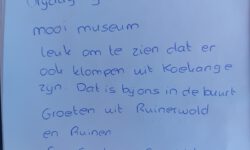 mooi museum
leuk om te zien dat er
ook klompen uit Koekange
zyn. Dat is by ons in de buurt
Groeten uit Ruinerwold
en Ruinen